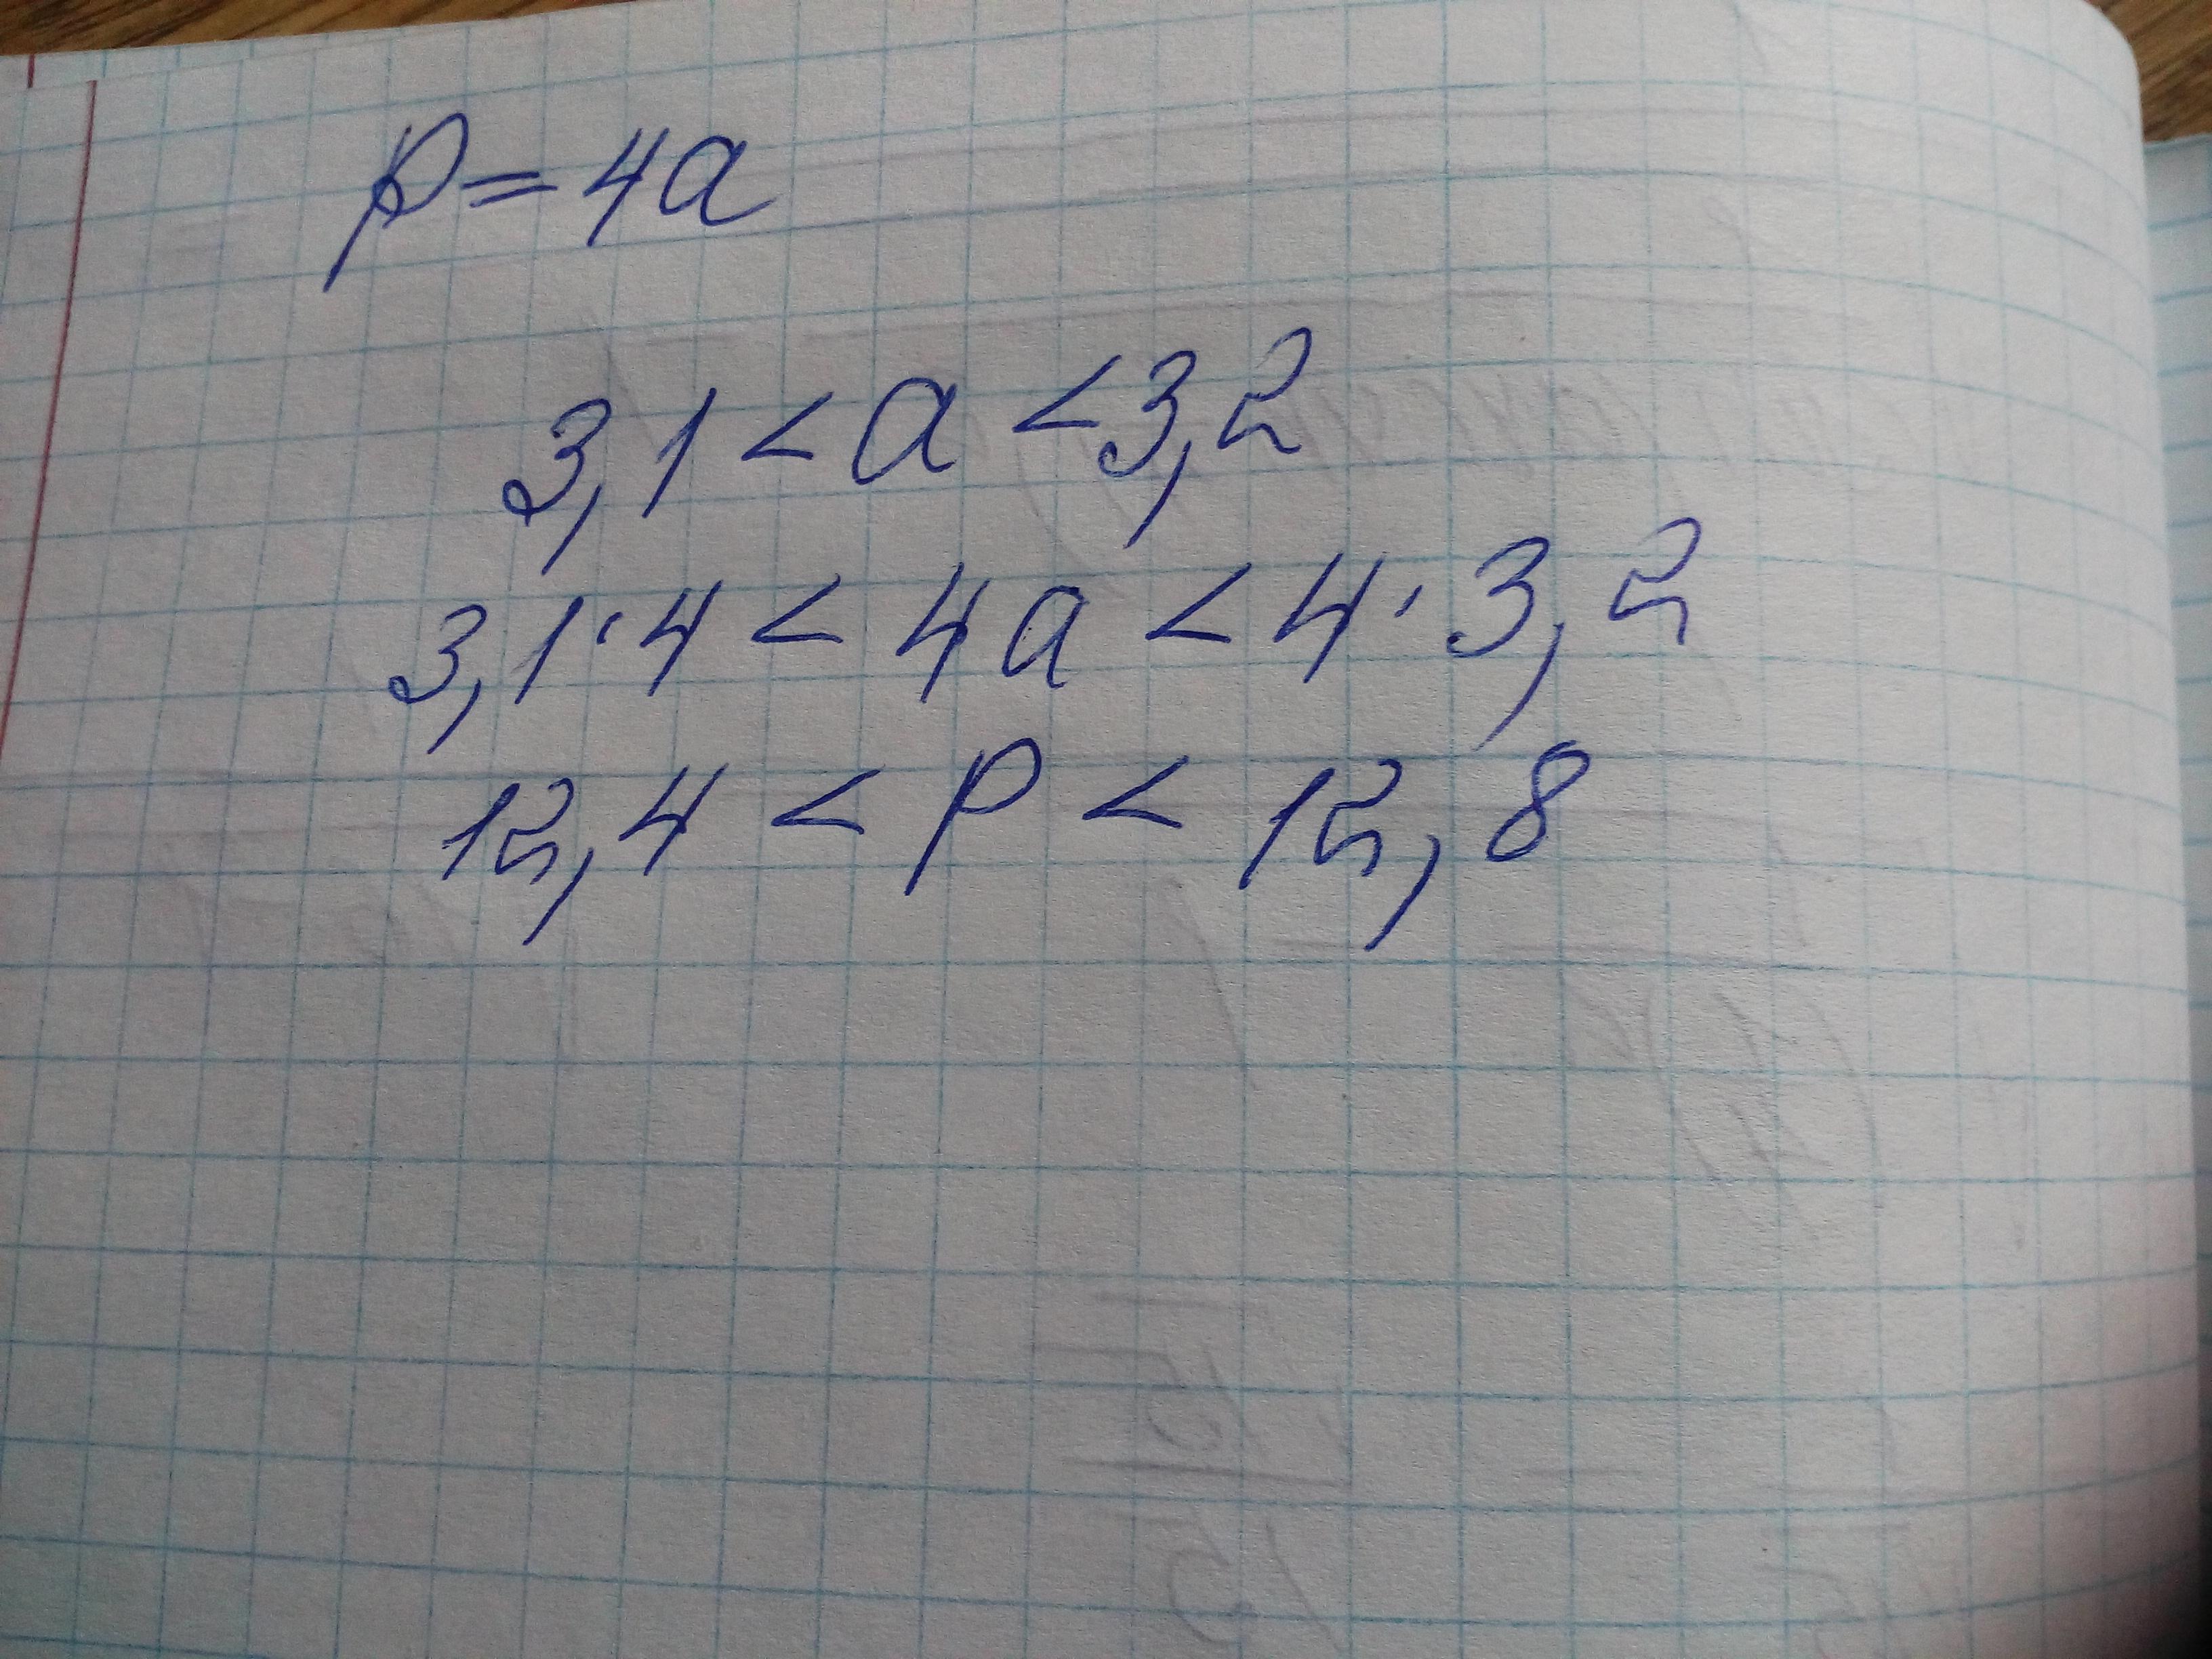 P=4a
3,1<a<3,2
3,1·4<4a<4·3,2
12,4<P<12,8